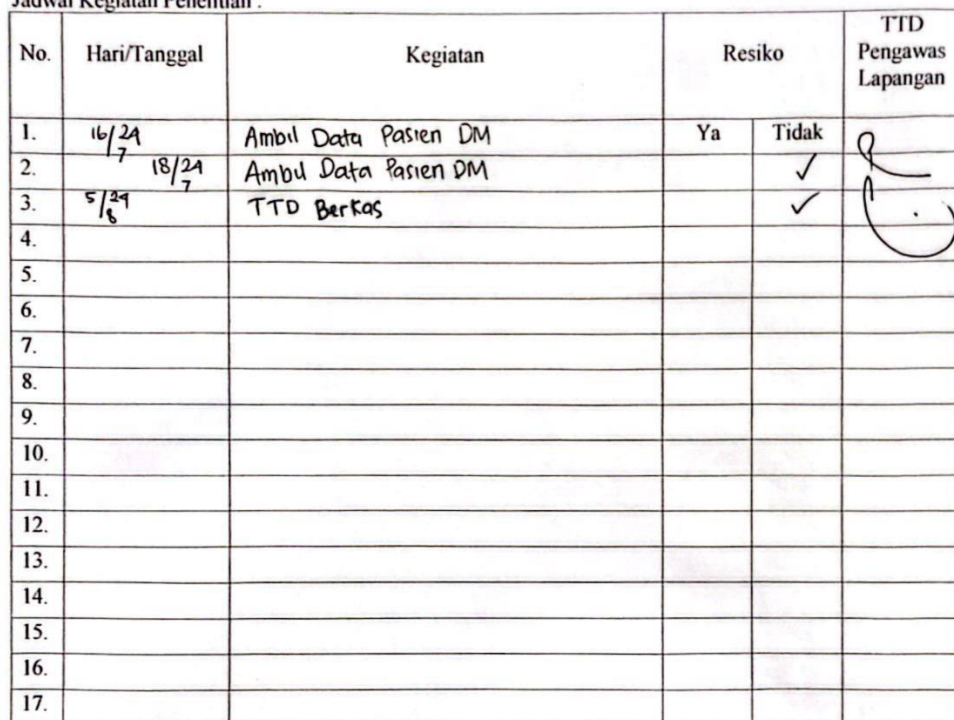 Jadwal Kegiatan Penelitian :
No. Hari/Tanggal Kegiatan Resiko TTD Pengawas Lapangan
1. 16/7 24 Ambil Data Pasien DM Ya Tidak
2. 18/7 24 Ambil Data Pasien DM ✓
3. 5/8 24 TTD Berkas ✓
4.
5.
6.
7.
8.
9.
10.
11.
12.
13.
14.
15.
16.
17.